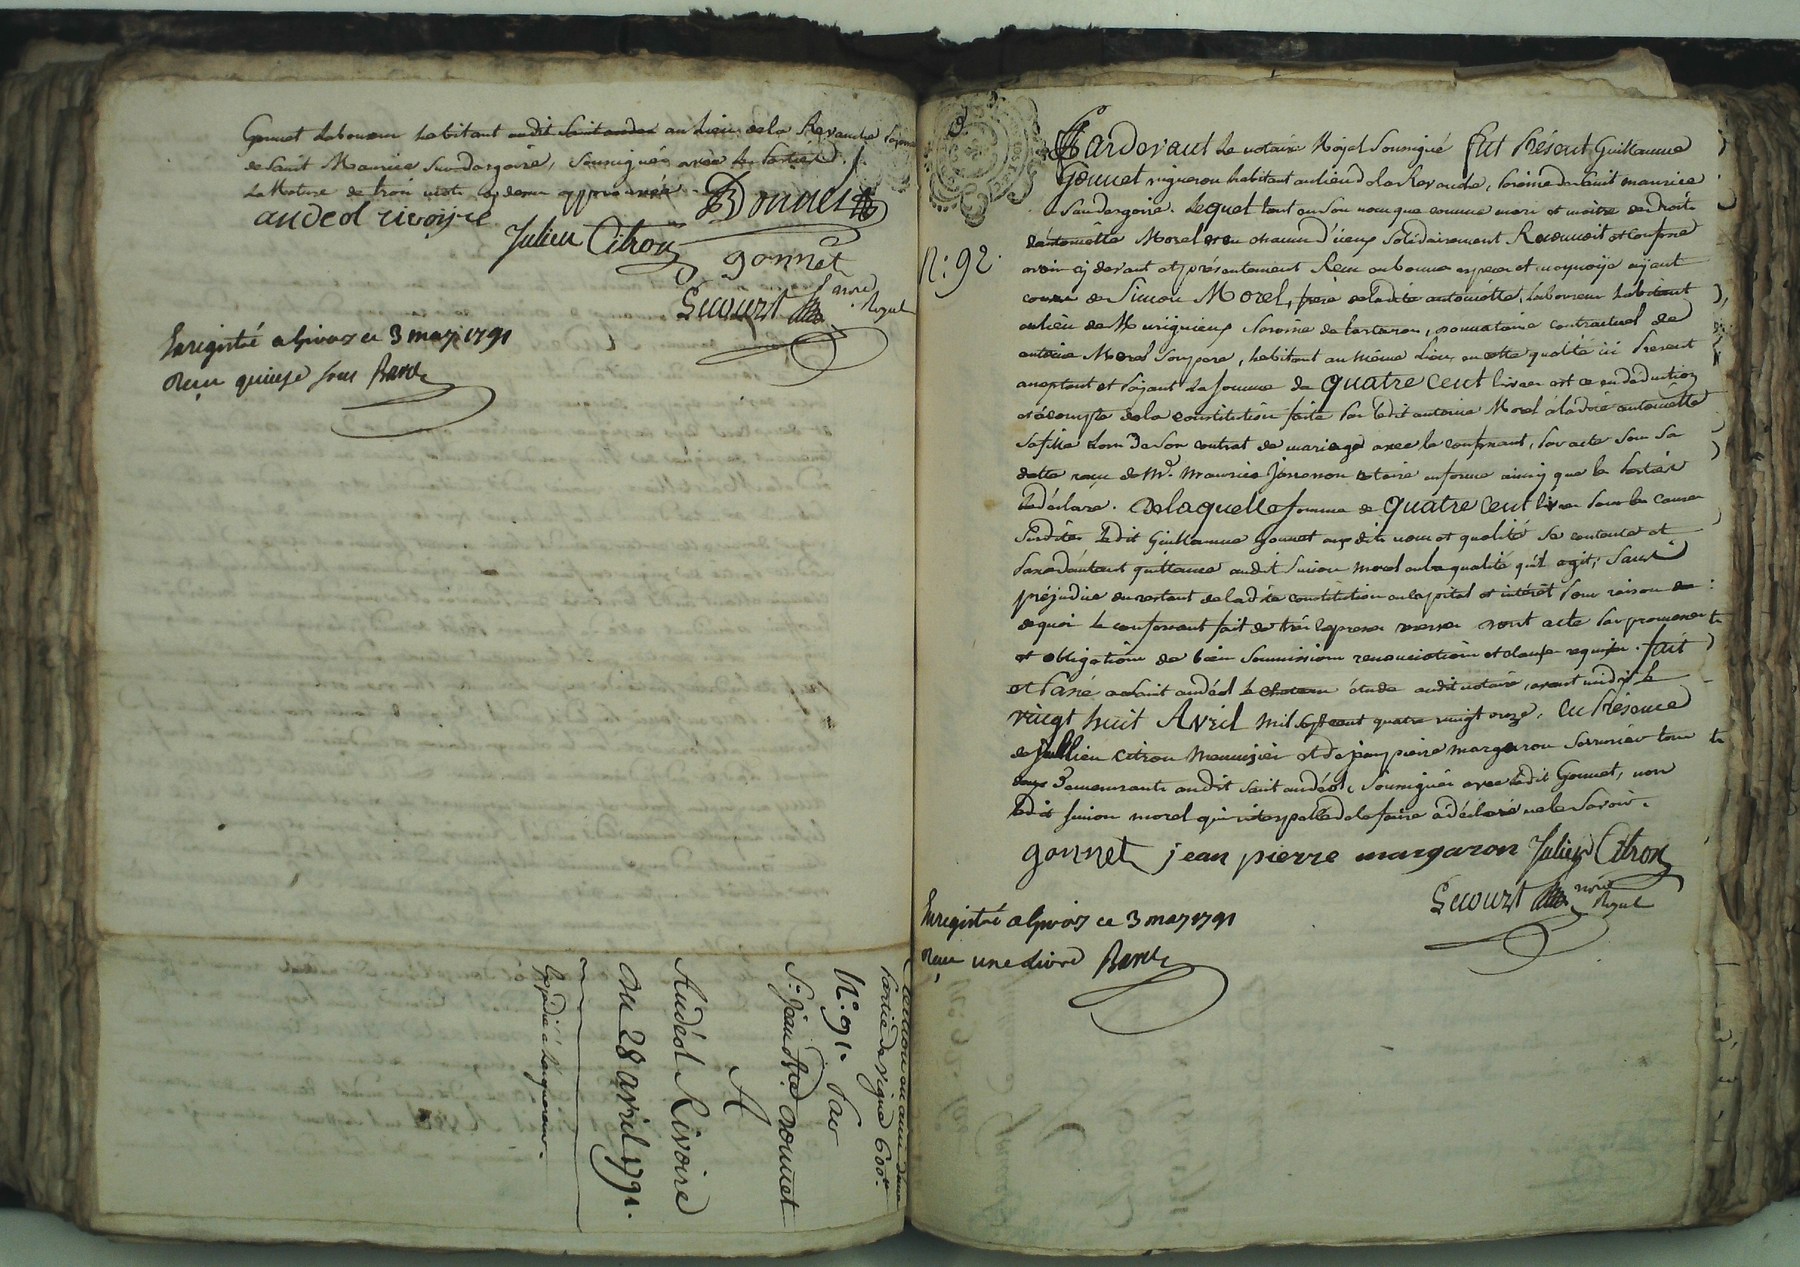 Gonnet Laboureur habitant audit Saint andeol au Lieu de la Revaude
de Saint Maurice Sur dargoire, Soussignés avec les parties.
La Rature de trois mots cy dessus approuvée
andeol rivoire
Donnet
Julien Citron
gonnet
Lecourt nore Royal
Enregistré a Givors ce 3 may 1791
Reçu quinze sous
partie de vigne 600ᵗᵗ
N.° 91. Par
S.r Jean donnet
A
Andéol Rivoire
Du 28 avril 1791.
Expédié a Lacquereur.
N.° 92.
Pardevant Le notaire Royal Soussigné fut Présent Guillaume
Gonnet vigneron habitant au lieu de la Revaude, paroisse de Saint maurice
Sur dargoire. Lequel tant en Son nom que comme mari et maitre des droits
d'antoinette Morel et en chacun d'ieux Solidairement Reconnoit et Confesse
avoir cy devant et présentement Reçu en bonnes especes et monnoye ayant
cours de Simon Morel, frere de ladite antoinette, Laboureur habitant
au lieu de Murigneux Paroisse de tartaras, donnataire contractuel de
antoine Morel Son pere, habitant au même Lieu, en cette qualité ici Present
acceptant et Payant La Somme de quatre cent livres est ce en déduction
et àcompte de la constitution faite par Ledit antoine Morel à ladite antoinette
Sa fille Lors de Son contrat de mariage avec le confessant, par acte Sous Sa
datte reçu de M.e Maurice notaire en forme ainsy que les Parties
L'ont déclaré. De laquelle Somme de quatre cent livres pour les causes
Susdites Ledit Guillaume gonnet auxdits nom et qualité Se contente et
Passe d'autant quittance audit Simon morel en la qualité qu'il agit, Sans
préjudice du restant de ladite constitution en capital et intérêt Pour raison de
quoi le confessant fait de très expresses reserves dont acte Par promesses
et obligations de biens Soumissions renonciations et clauses requises. fait
et Passé a Saint andéol le chateau étude dudit notaire, avant midy le
vingt huit Avril mil Sept cent quatre vingt onze, En Présence
de Jullien citron Menuisier et de jean pierre margaron Serrurier tous
deux demeurants audit Saint andéol, Soussignés avec ledit Gonnet, non
Ledit Simon morel qui interpellé de le faire a déclaré ne le Savoir.
gonnet jean pierre margaron Julien Citron
Lecourt nore Royal
Enregistré a Givors ce 3 may 1791
Reçu une Livre